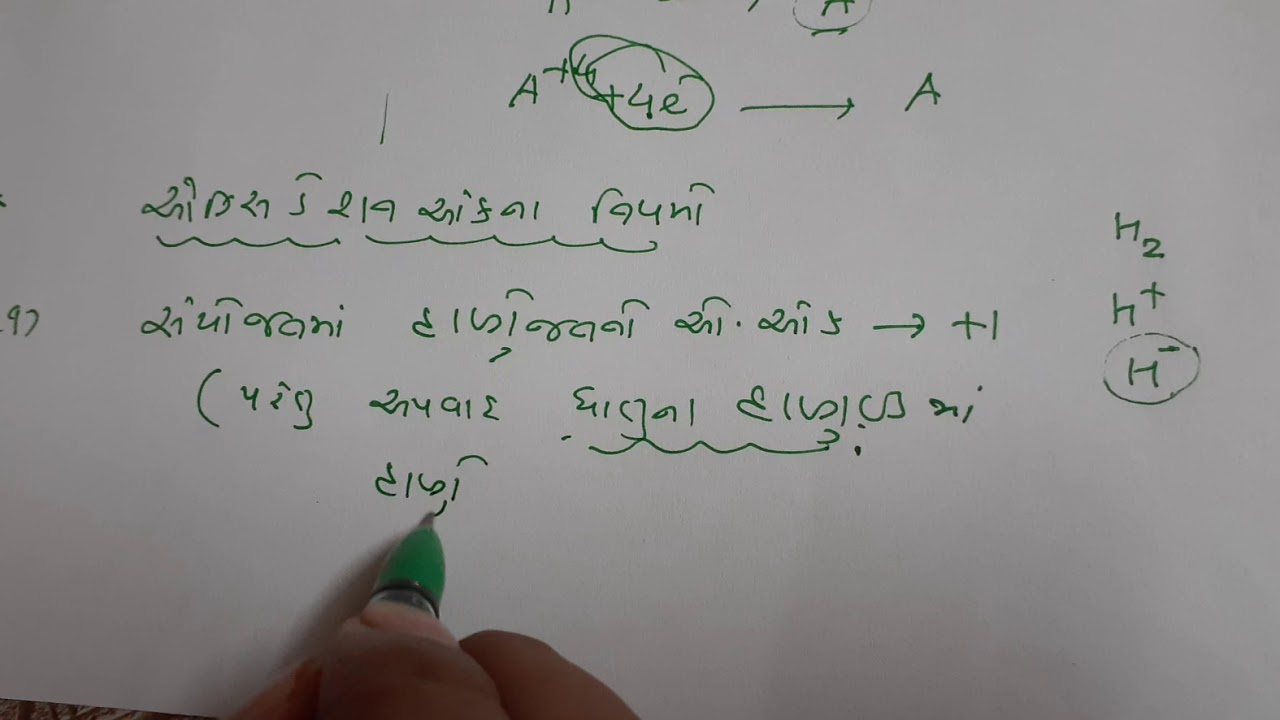 A⁺⁴ + 4e⁻ → A
ઓક્સિડેશન આંકના નિયમો
સંયોજનમાં હાઇડ્રોજનનો ઓ. આંક → +1
(પરંતુ અપવાદ ધાતુના હાઇડ્રાઇડ માં
હાઇડ્રો
H₂
H⁺
H⁻